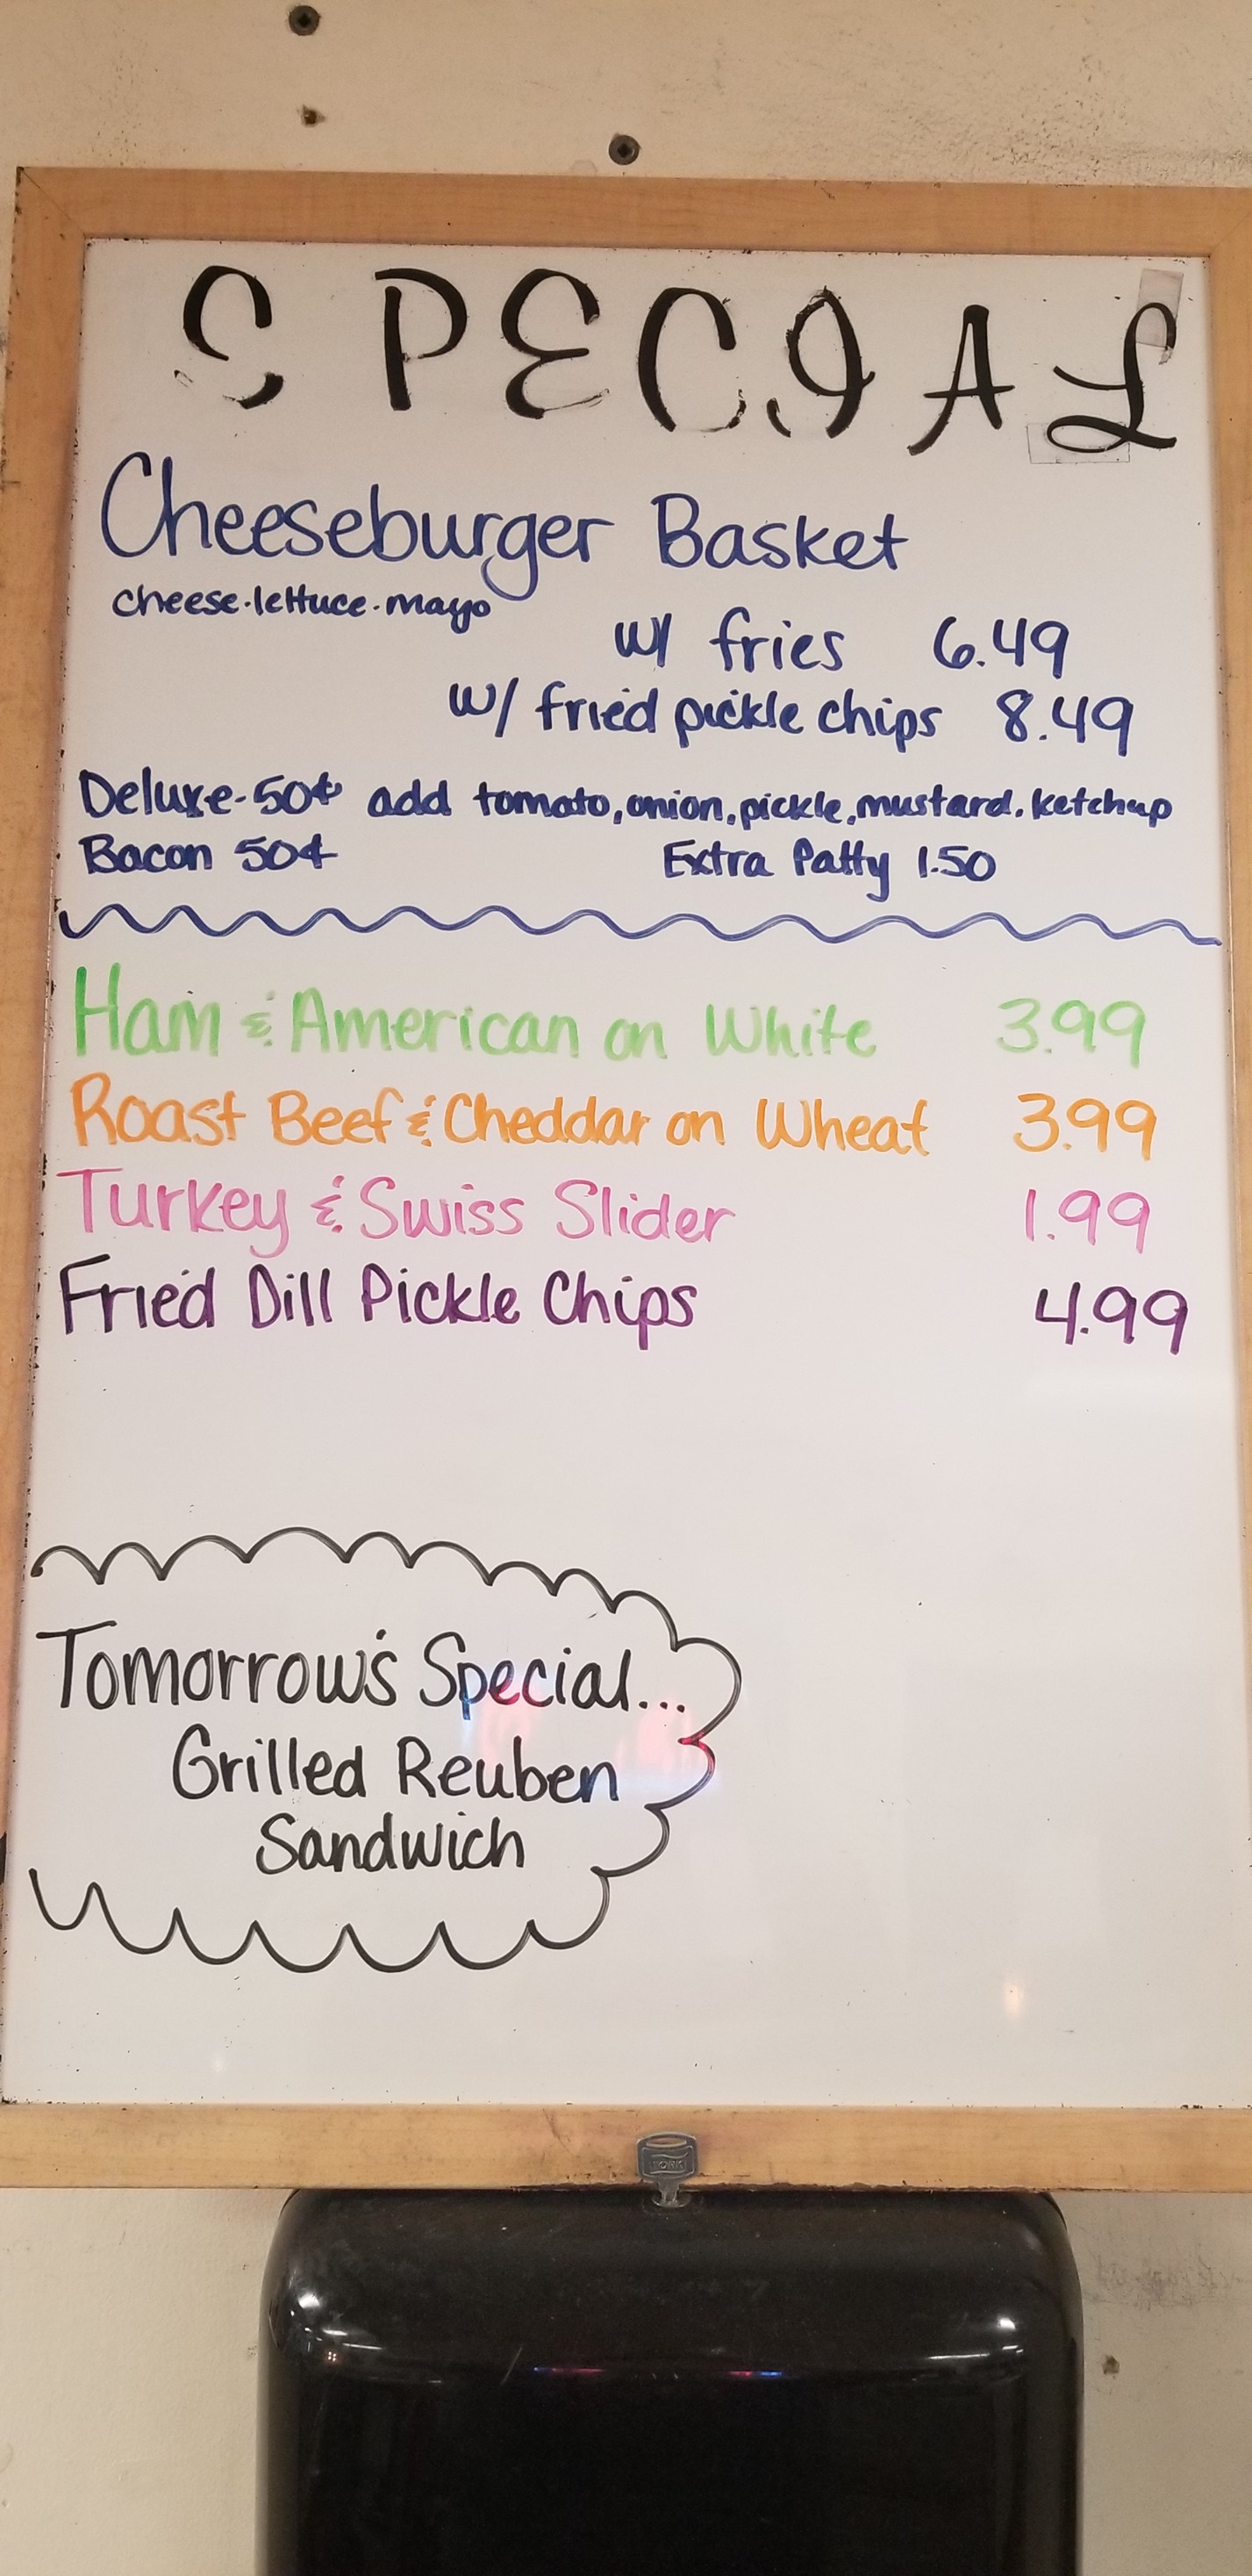 SPECIAL
Cheeseburger Basket
cheese·lettuce·mayo
w/ fries 6.49
w/ fried pickle chips 8.49
Deluxe-50¢ add tomato, onion, pickle, mustard, ketchup
Bacon 50¢ Extra Patty 1.50
Ham & American on White 3.99
Roast Beef & Cheddar on Wheat 3.99
Turkey & Swiss Slider 1.99
Fried Dill Pickle Chips 4.99
Tomorrow's Special...
Grilled Reuben
Sandwich
TORK